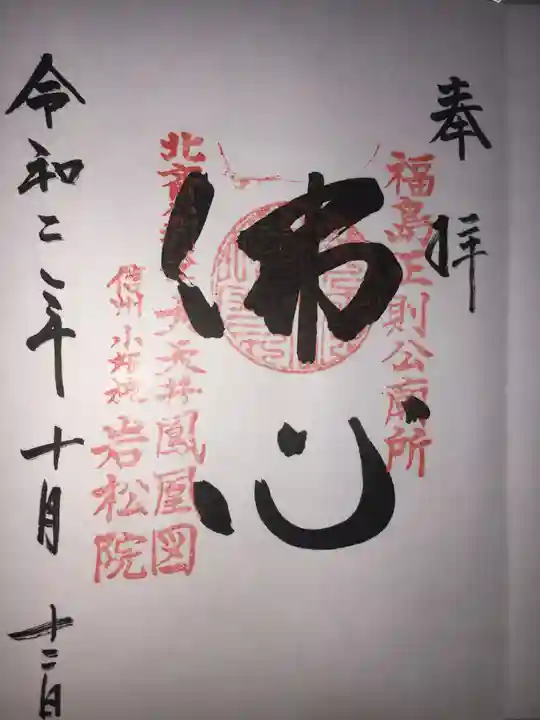 奉拝
福島正則公廟所
佛心
北斎 大天井鳳凰図
信州小布施 岩松院
令和二年十月十二日